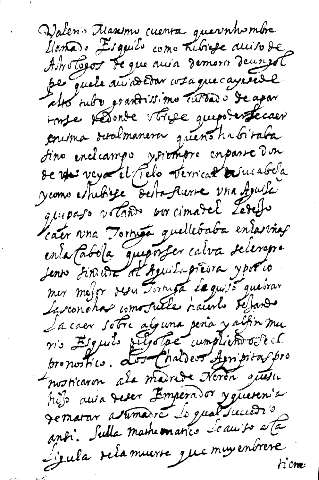 Valerio Maximo cuenta que vn hombre
llamado Esquilo como hubiese auiso de
Astrologos de que auia de morir de un gol
pe que le auia de dar cosa que cayese de
alto tubo grandissimo cuidado de apar
tarse de donde ubiese que poderse caer
ensima de tal manera que no habitaba
sino en el campo y siempre en parte don
de veya el Cielo sobre su cabesa
y como estubiese desta suerte vna Aguila
que paso volando por cima del le dexo
caer vna Tortuga que llebaba en las vñas
en la Cabesa que por ser calva se le repre
sento al Aguila piedra y por co
mer mejor de su Tortuga la quiso quebrar
las conchas como suele haserlo dexando
la caer sobre alguna peña y al fin mu
rio Esquilo del golpe cumpliendose el
pronostico. Los Chaldeos pro
nosticaron a la madre de Neron que su
hijo auia de ser Emperador y que tenia
de matar a su madre lo qual sucedio
ansi. Sulla mathematico le auiso a Ca
ligula de la muerte que muy en breve